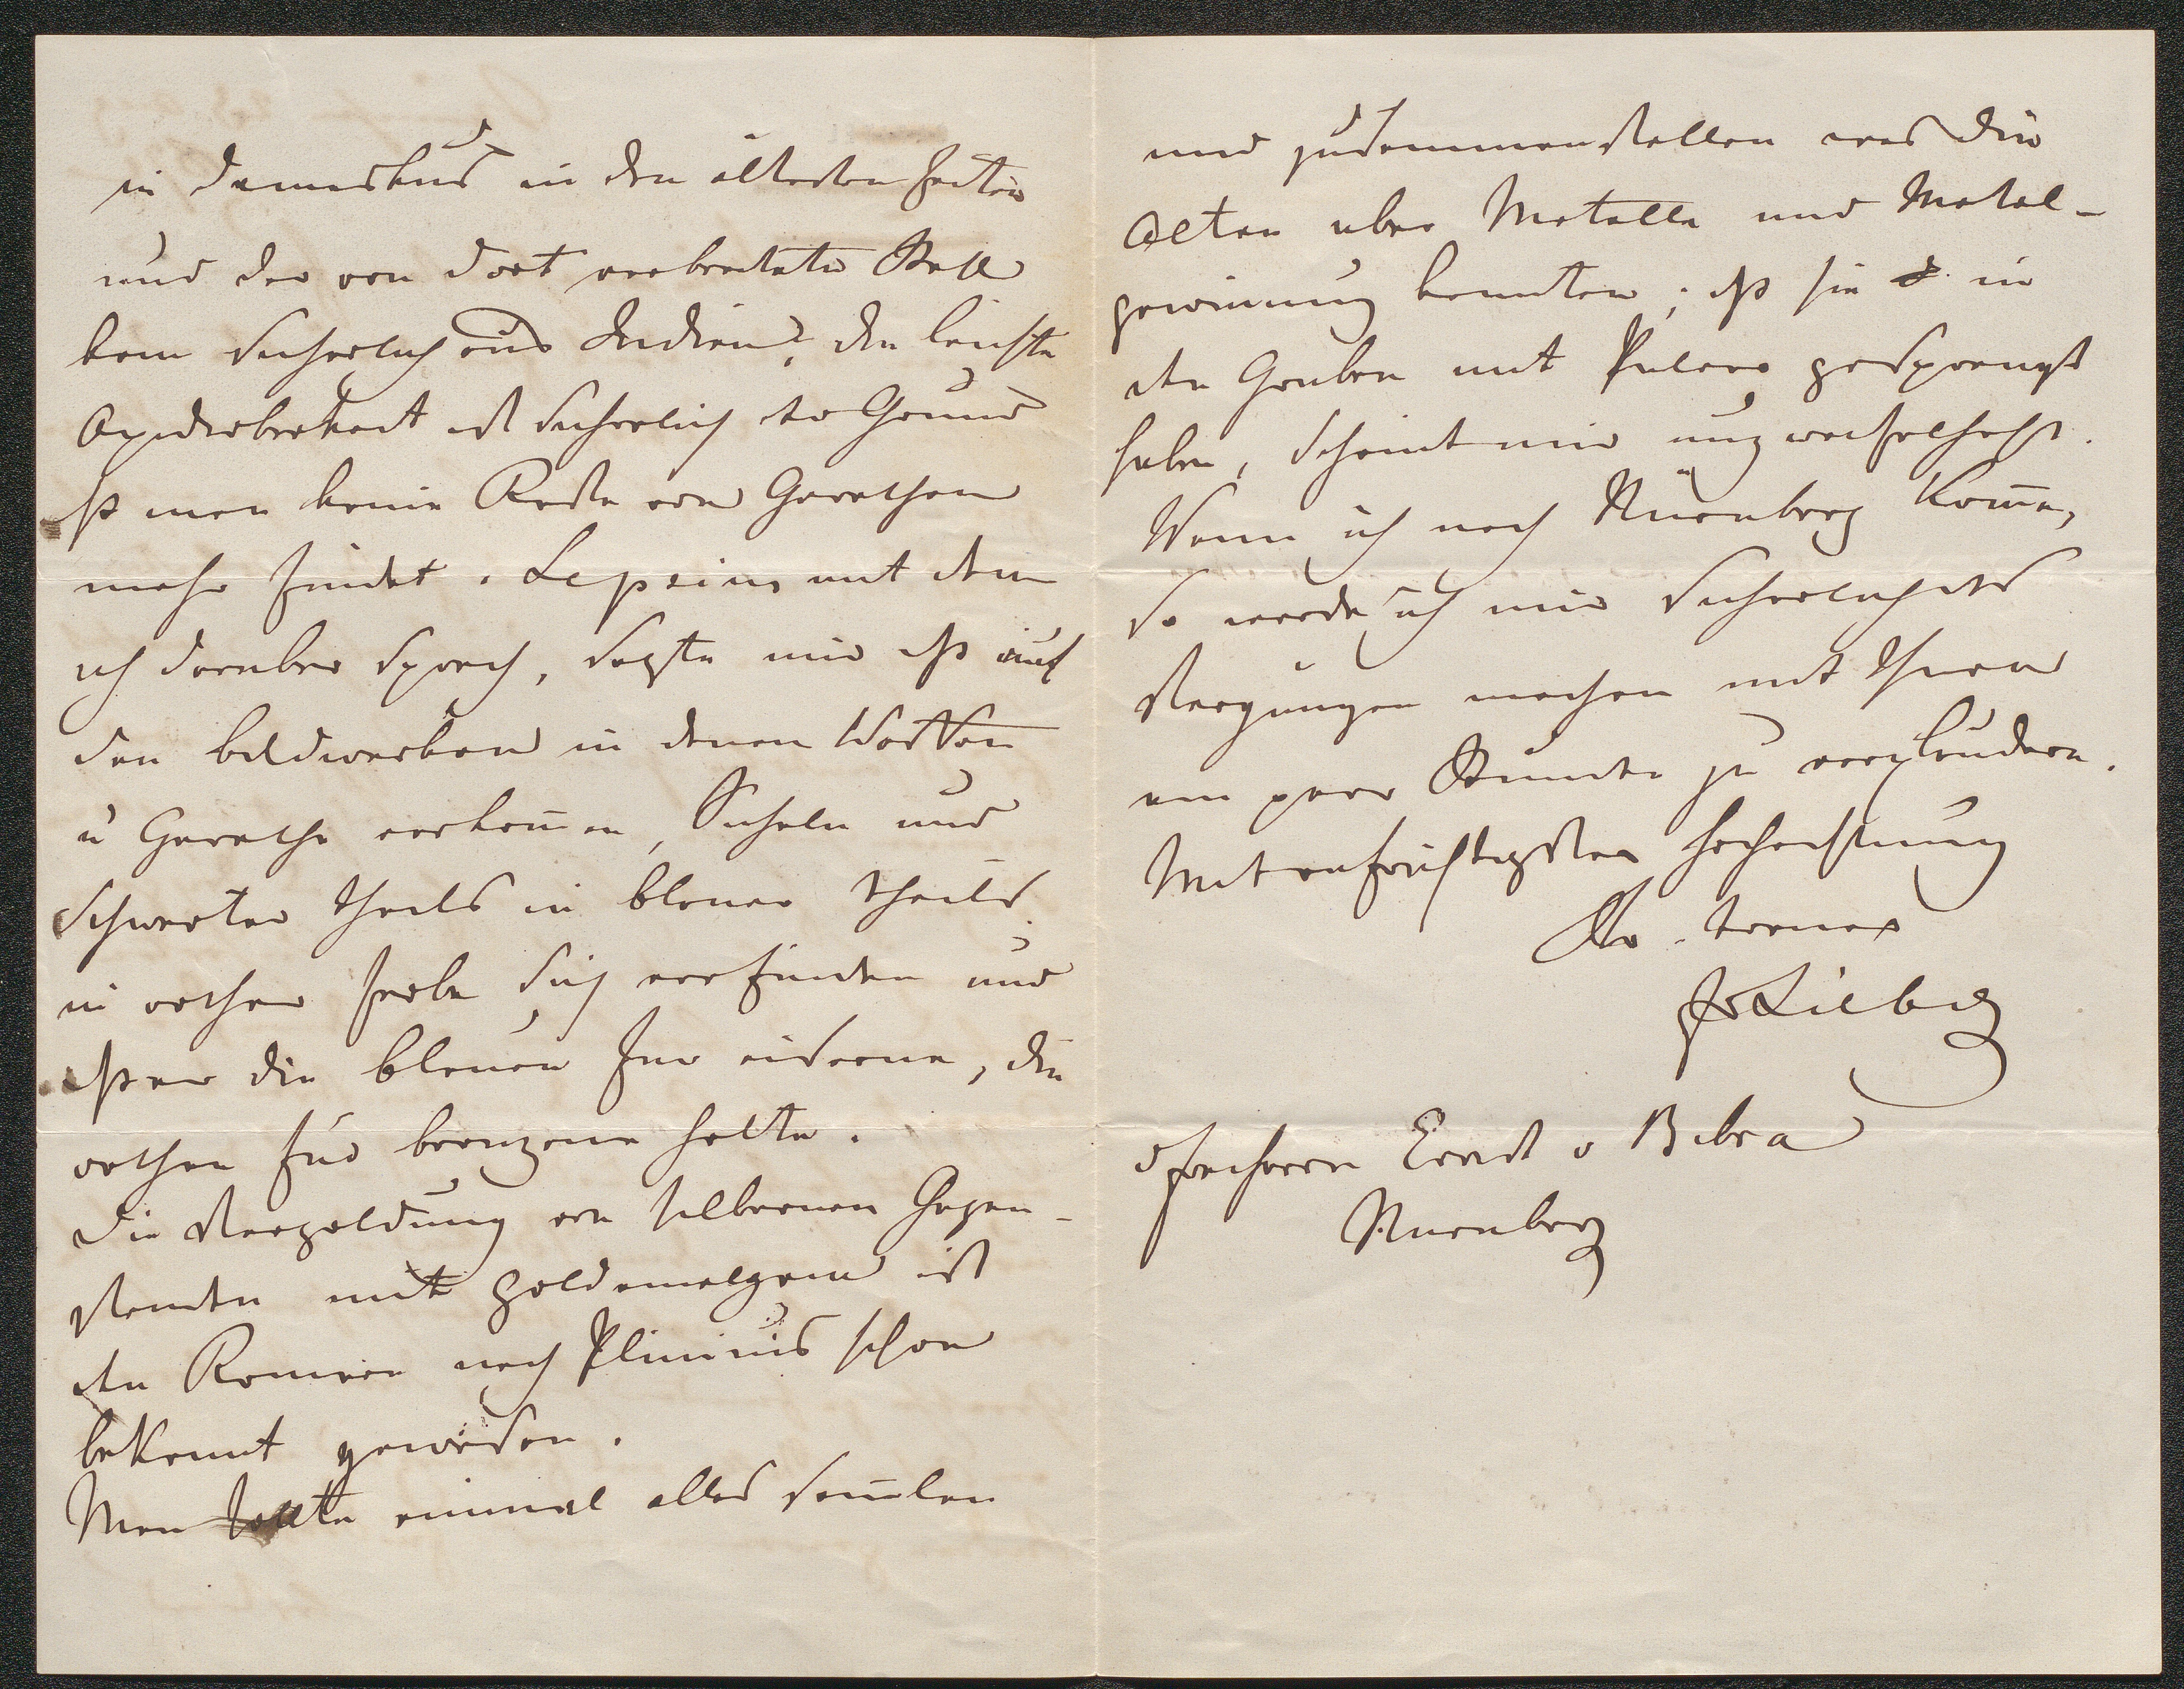 in Damaskus in den ältesten Zeiten
und der von dort verbreitete Stahl
kam sicherlich aus Indien?, die leichte
Oxydirbarkeit ist sicherlich der Grund
dß man keine Reste von Gerathen
mehr findet. Lepsius mit dem
ich daruber sprach, sagte mir dß auf
den bildwerken in denen Waffen
u Gerathe vorkom̄en, Sicheln und
Schwerter theils in blauer theils
in rother farbe sich vorfinden und
dß er die blauen fur eiserne, die
rothen für bronzene halte.
Die Vergoldung von silbernen Gegen-
standen mit goldamalgam ist
den Romern nach Plinius schon
bekannt gewesen.
Man sollte einmal alles sam̄len
und zusammenstellen was die
Alten uber Metalle und Metal-
gewinnung kannten; dß sie in
den Gruben mit Pulver gesprengt
haben, scheint mir unzweifelhaft.
Wenn ich nach Nürnberg kom̄e,
so werde ich mir sicherlich das
Vergnugen machen mit Ihnen
ein paar Stunden zu verplaudern.
Mit aufrichtigster hochachtung
Ihr. treuer
JvLiebig
Freiherrn Ernst v Bibra
Nurnberg